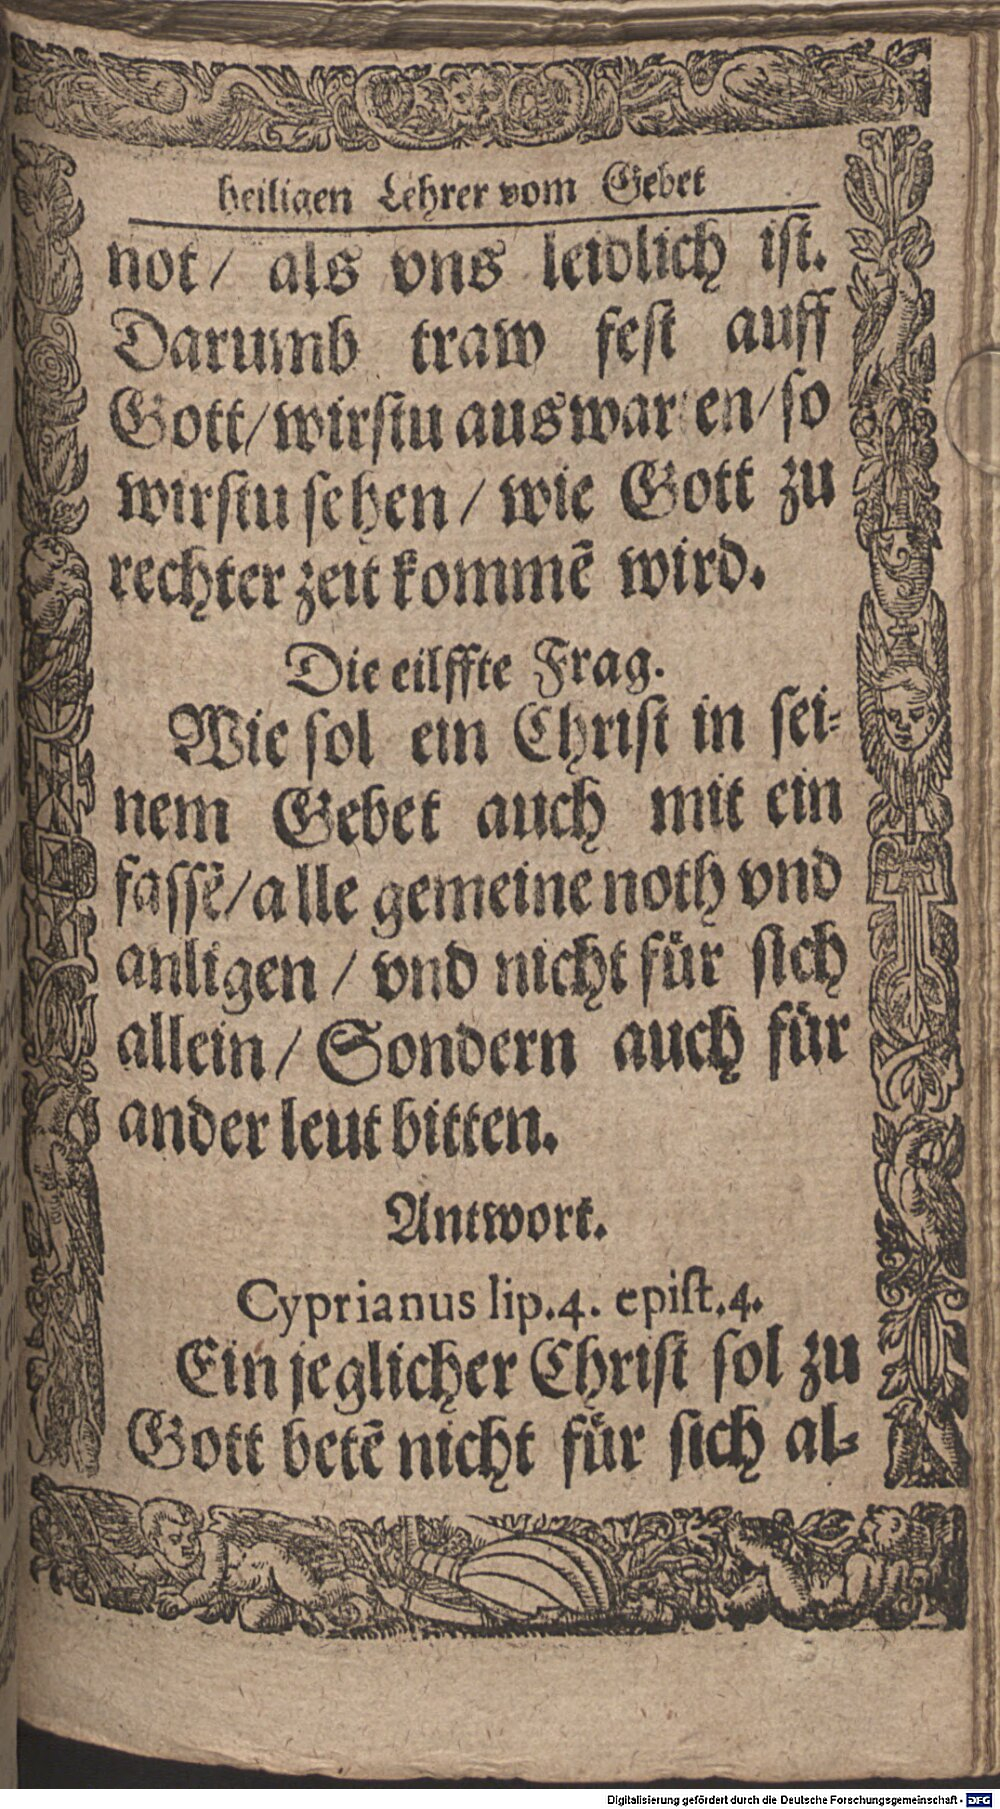 heiligen Lehrer vom Gebet
not / als vns leidlich ist.
Darumb traw fest auff
Gott / wirstu auswarten / so
wirstu sehen / wie Gott zu
rechter zeit kommẽ wird.
Die eilffte Frag.
Wie sol ein Christ in sei-
nem Gebet auch mit ein
fassẽ / alle gemeine noth vnd
anligen / vnd nicht für sich
allein / Sondern auch für
ander leut bitten.
Antwort.
Cyprianus lip. 4. epist. 4.
Ein jeglicher Christ sol zu
Gott betẽ nicht für sich al-
Digitalisierung gefördert durch die Deutsche Forschungsgemeinschaft - DFG